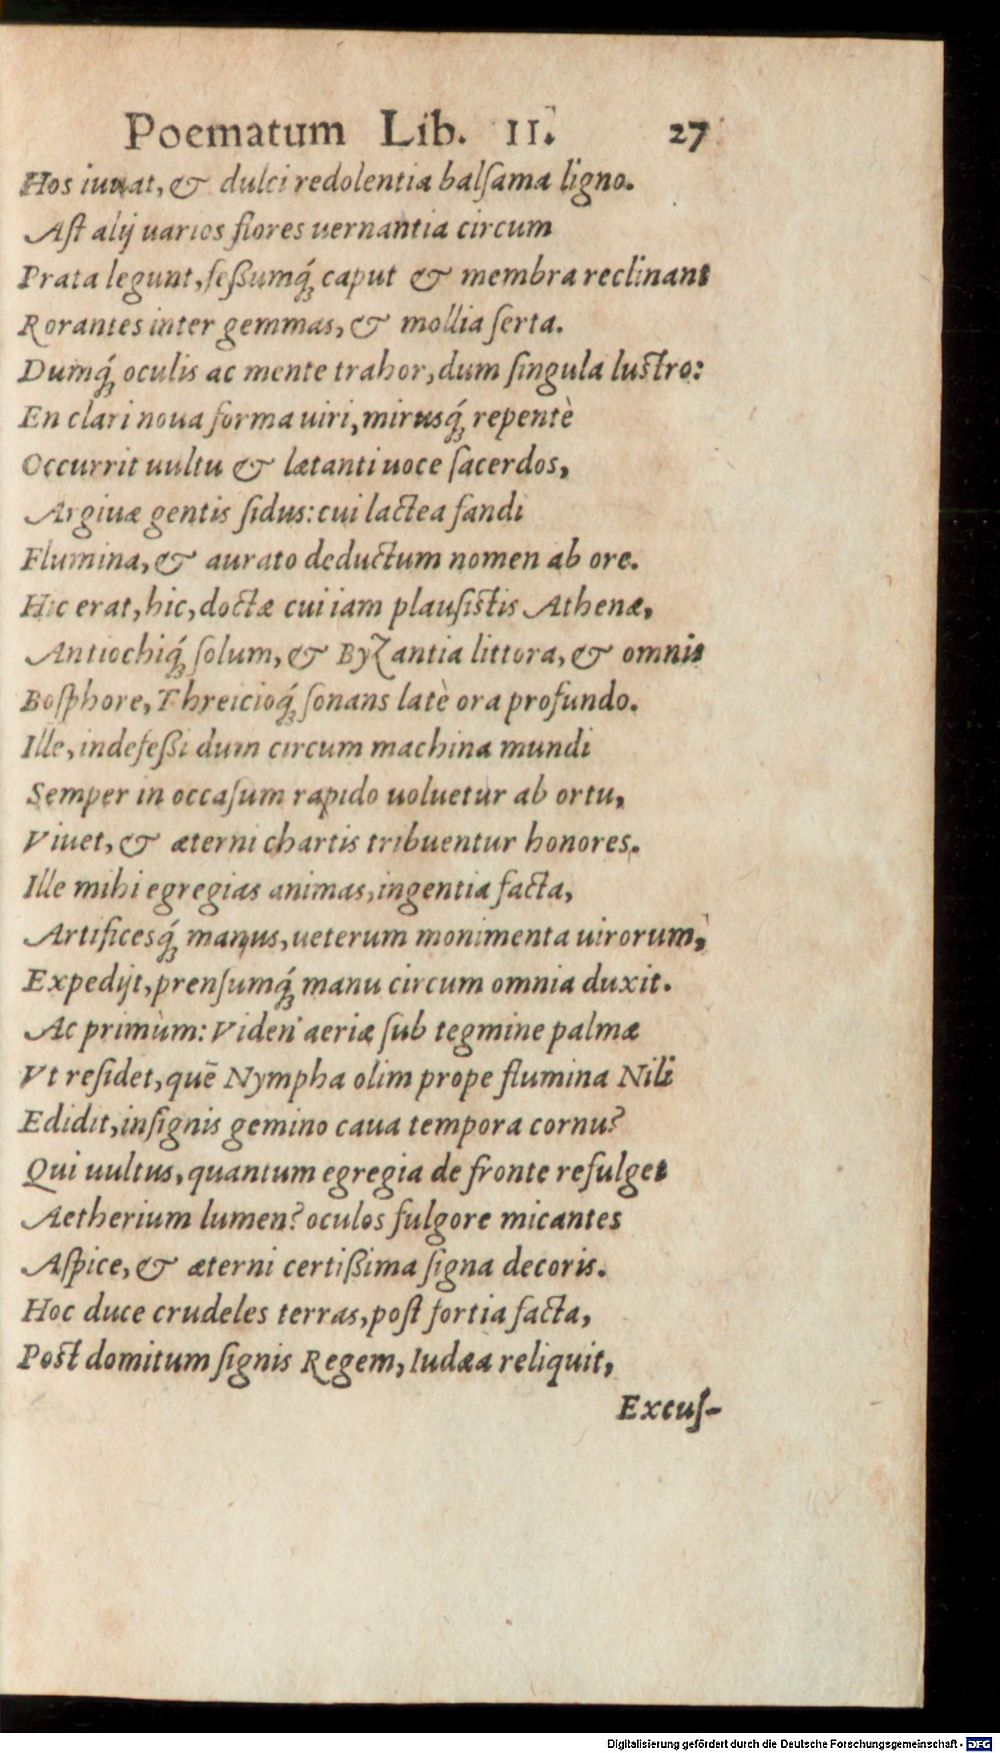 Poematum Lib. II. 27
Hos iuuat, & dulci redolentia balſama ligno.
Aſt alij uarios flores uernantia circum
Prata legunt, feßumq́ꝫ caput & membra reclinant
Rorantes inter gemmas, & mollia ſerta.
Dumq́ꝫ oculis ac mente trahor, dum ſingula luſtro:
En clari noua forma uiri, mirusq́ꝫ repentè
Occurrit uultu & lætanti uoce ſacerdos,
Argiuæ gentis ſidus: cui lactea fandi
Flumina, & aurato deductum nomen ab ore.
Hic erat, hic, doctæ cui iam plauſiſtis Athenæ,
Antiochiq́ꝫ ſolum, & Byzantia littora, & omnis
Boſphore, Threicioq́ꝫ ſonans latè ora profundo.
Ille, indefeßi dum circum machina mundi
Semper in occaſum rapido uoluetur ab ortu,
Viuet, & æterni chartis tribuentur honores.
Ille mihi egregias animas, ingentia facta,
Artificesq́ꝫ manus, ueterum monimenta uirorum,
Expedijt, prenſumq́ꝫ manu circum omnia duxit.
Ac primùm: Viden' aeriæ ſub tegmine palmæ
Vt reſidet, quē Nympha olim prope flumina Nili
Edidit, inſignis gemino caua tempora cornu?
Qui uultus, quantum egregia de fronte refulget
Aetherium lumen? oculos fulgore micantes
Aſpice, & æterni certißima ſigna decoris.
Hoc duce crudeles terras, poſt fortia facta,
Poſt domitum ſignis Regem, Iudæa reliquit,
Excuſ-
Digitalisierung gefördert durch die Deutsche Forschungsgemeinschaft - DFG